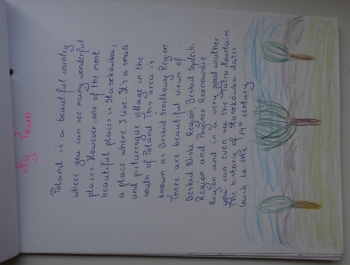 My Town
Poland is a beautiful country
where you can see many wonderful
places. However, one of the most
beautiful places is Starekówka,
a place where I live. It's a small
and picturesque village in the
south of Poland. This area is
known as Beskid Środkowy Region.
There are beautiful views of
Beskid Niski Region, Beskid Sądecki
Region and Pogórze Rożnowskie
Region and in a very good weather
you can even see the Tatra Mountains.
The history of dates
back to the 14th century